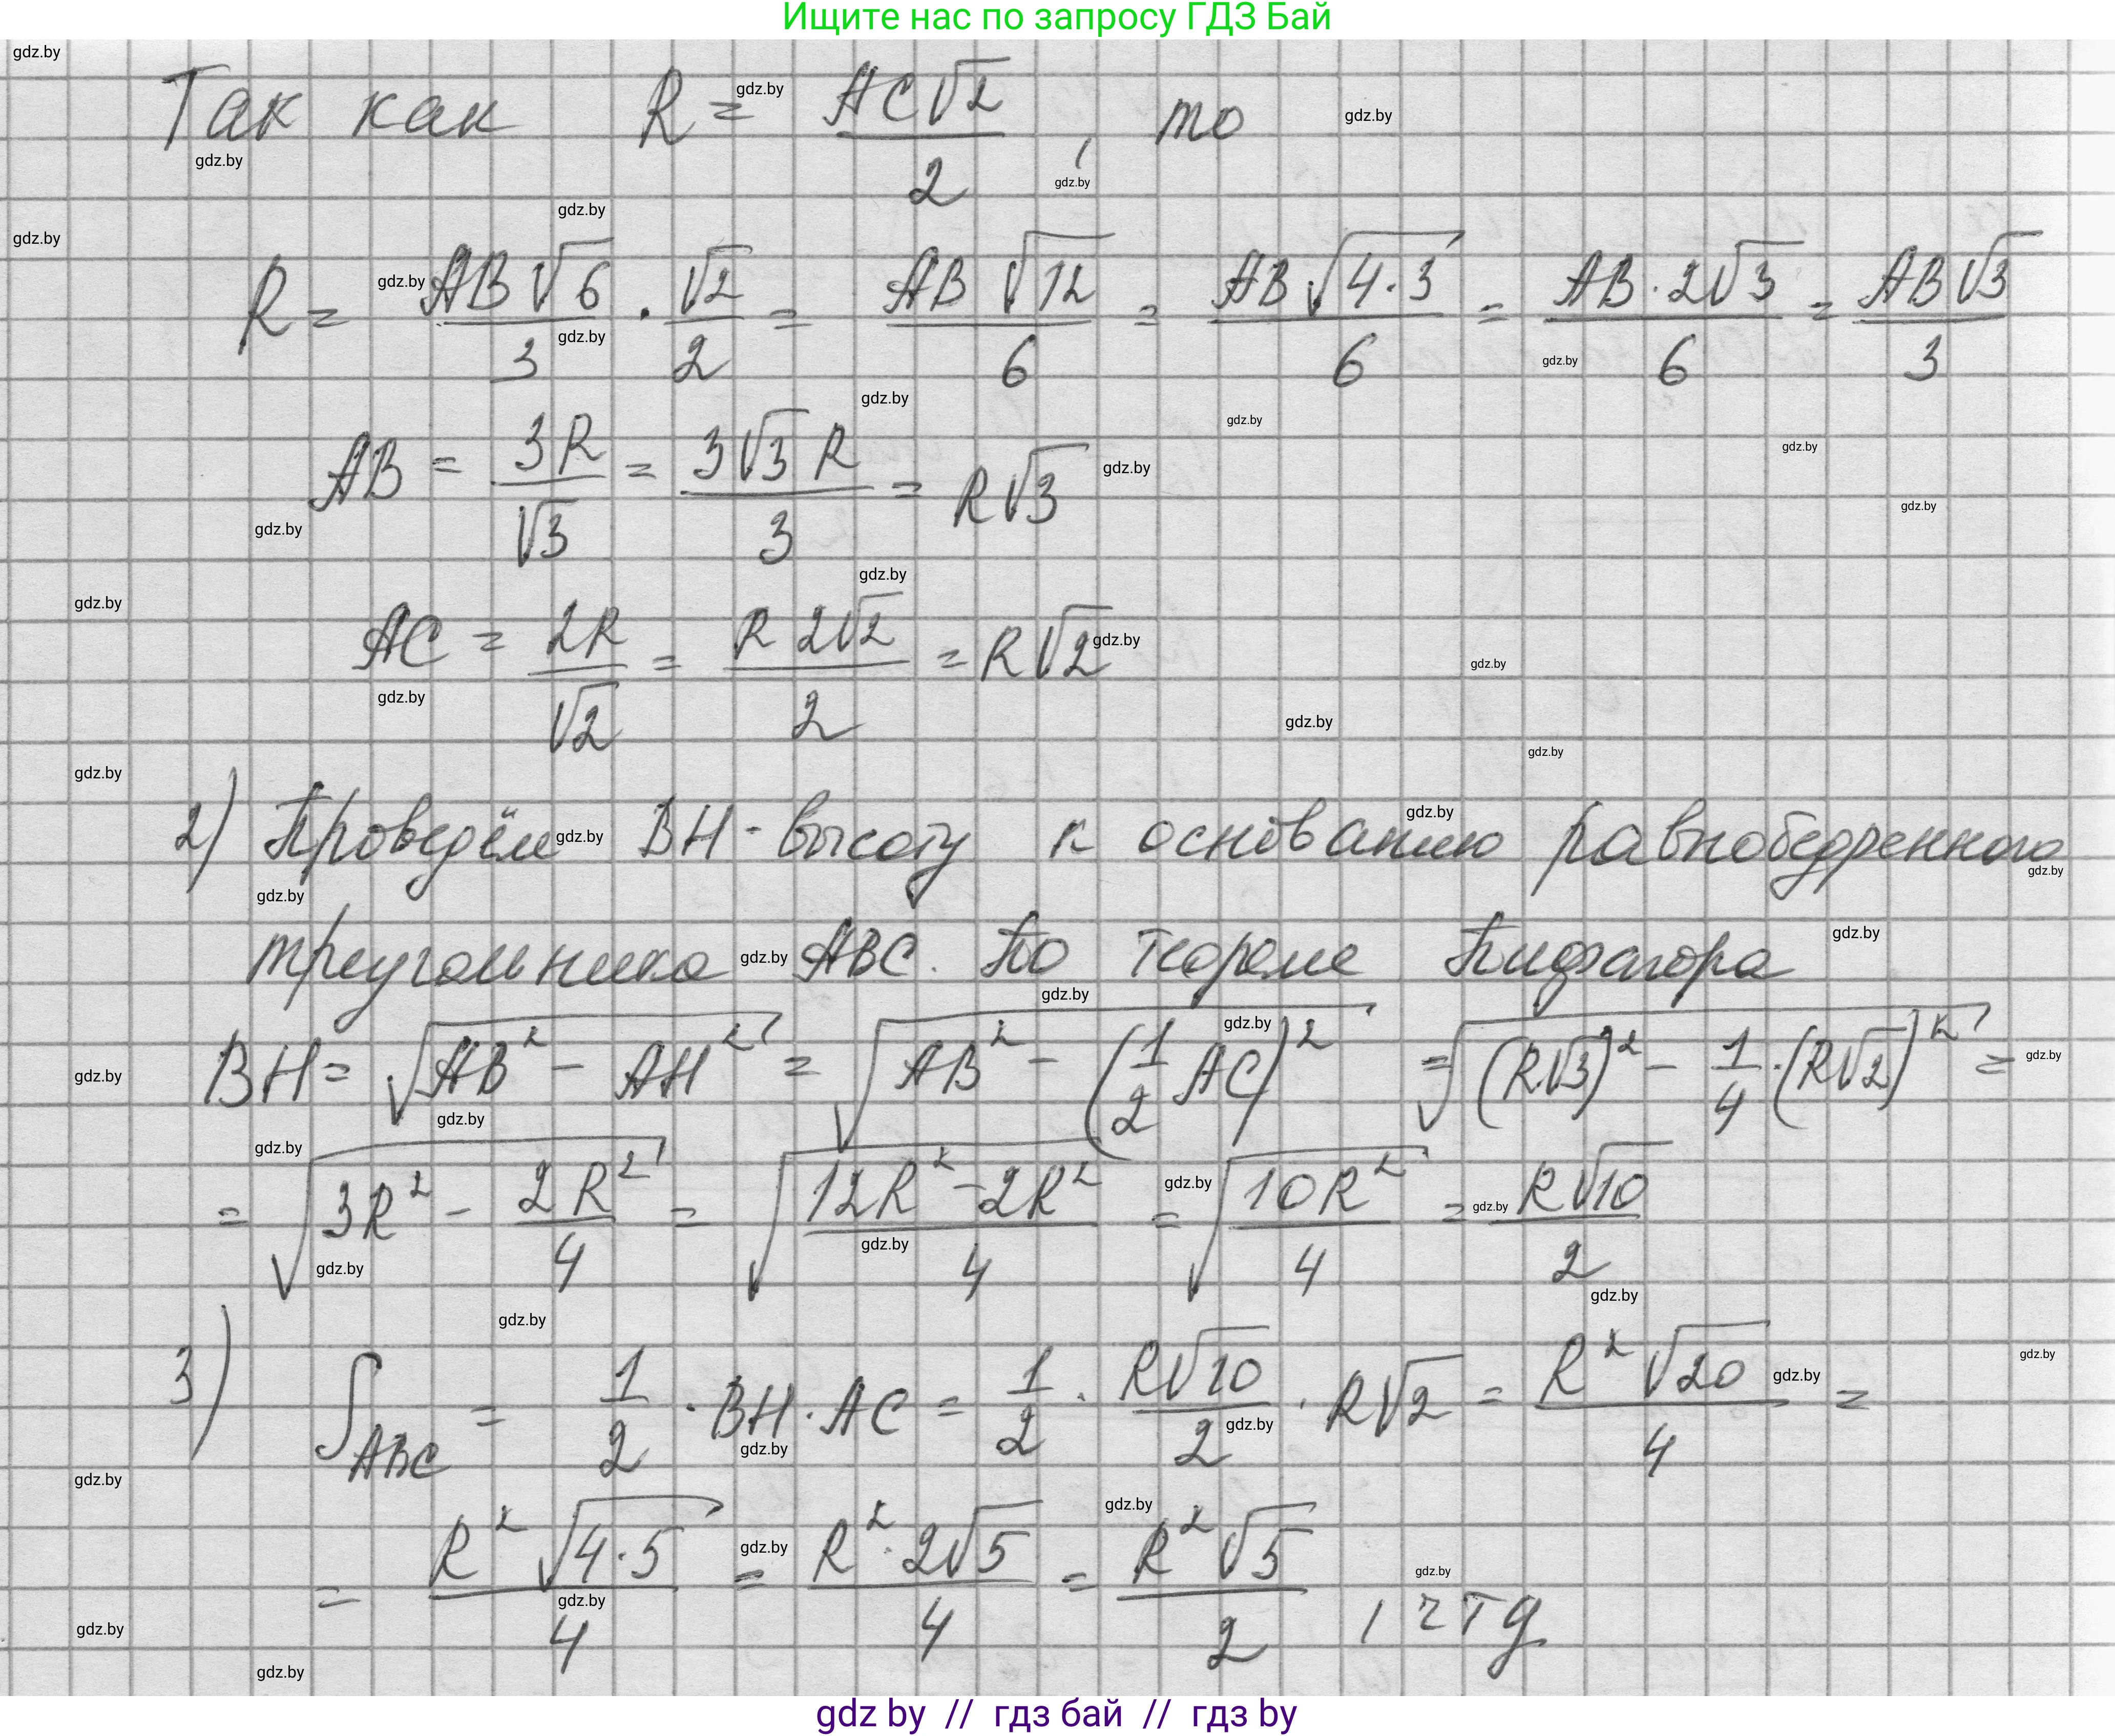 Ищите нас по запросу ГДЗ Бай
Так как R = AC√2/2, то
R = AB√6/3 · √2/2 = AB√12/6 = AB√(4·3)/6 = AB·2√3/6 = AB√3/3
AB = 3R/√3 = 3√3 R/3 = R√3
AC = 2R/√2 = R2√2/2 = R√2
2) Проведём BH - высоту к основанию равнобедренного
треугольника ABC. По теореме Пифагора
BH = √(AB² - AH²) = √(AB² - (1/2 AC)²) = √((R√3)² - 1/4·(R√2)²) =
= √(3R² - 2R²/4) = √((12R² - 2R²)/4) = √(10R²/4) = R√10/2
3) S_ABC = 1/2 · BH · AC = 1/2 · R√10/2 · R√2 = R²√20/4 =
= R²√(4·5)/4 = R²·2√5/4 = R²√5/2, чтд
gdz by // гдз бай // гдз by